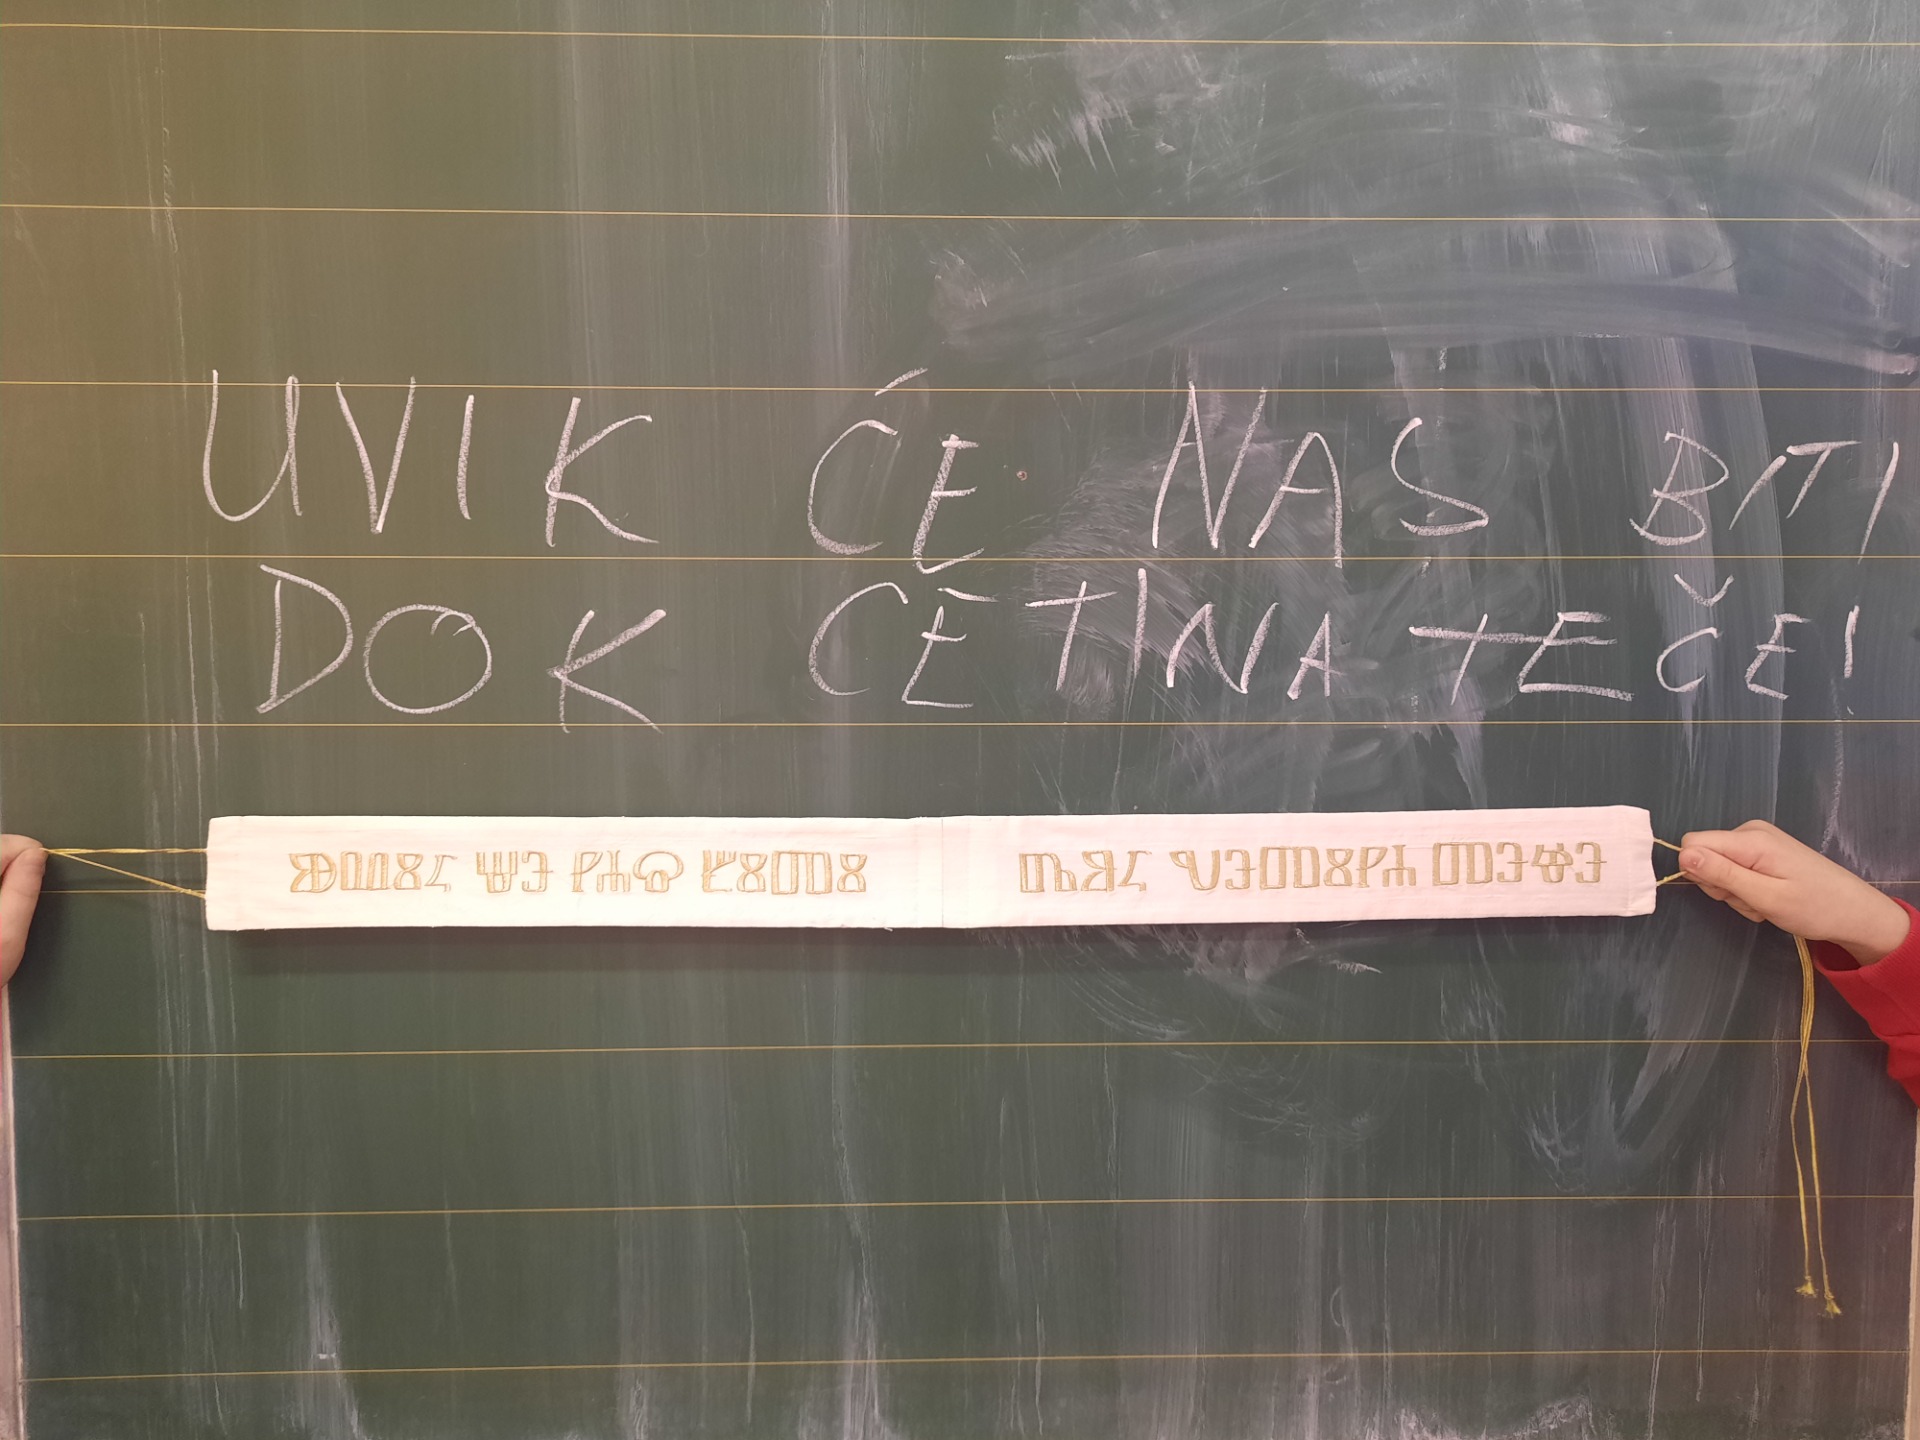 UVIK ĆE NAS BITI
DOK CETINA TEČE!
ⰖⰂⰊⰍ ⰛⰅ ⰐⰀⰔ ⰁⰊⰕⰊ ⰄⰑⰍ ⰜⰅⰕⰊⰐⰀ ⰕⰅⰝⰅ